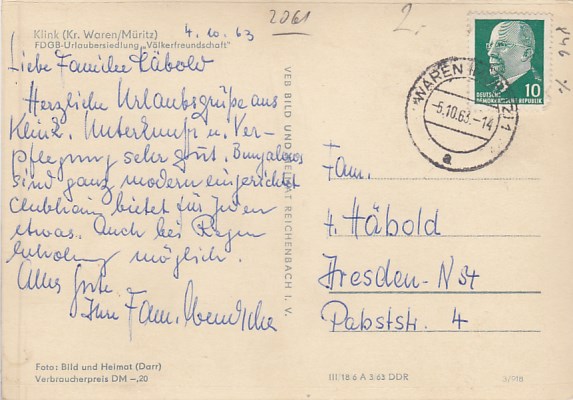 Klink (Kr. Waren/Müritz)
FDGB-Urlaubersiedlung „Völkerfreundschaft"
4.10.63
2061
2.-
Liebe Familie Häbold
Herzliche Urlaubsgrüße aus
Klink. Unterkunft u. Ver-
pflegung sehr gut. Bungalows
sind ganz modern eingerichtet
Clubhaus bietet für Jeden
etwas. Auch bei Regen
Erholung möglich.
Alles Gute
Ihre Fam.
VEB BILD UND HEIMAT REICHENBACH I. V.
10
DEUTSCHE
DEMOKRATISCHE REPUBLIK
WAREN (MÜRITZ) 1
-5.10.63.-14
a
Fam.
H. Häbold
Dresden-N 34
Pabststr. 4
Foto: Bild und Heimat (Darr)
Verbraucherpreis DM -,20
III/18/6 A 3/63 DDR
3/918